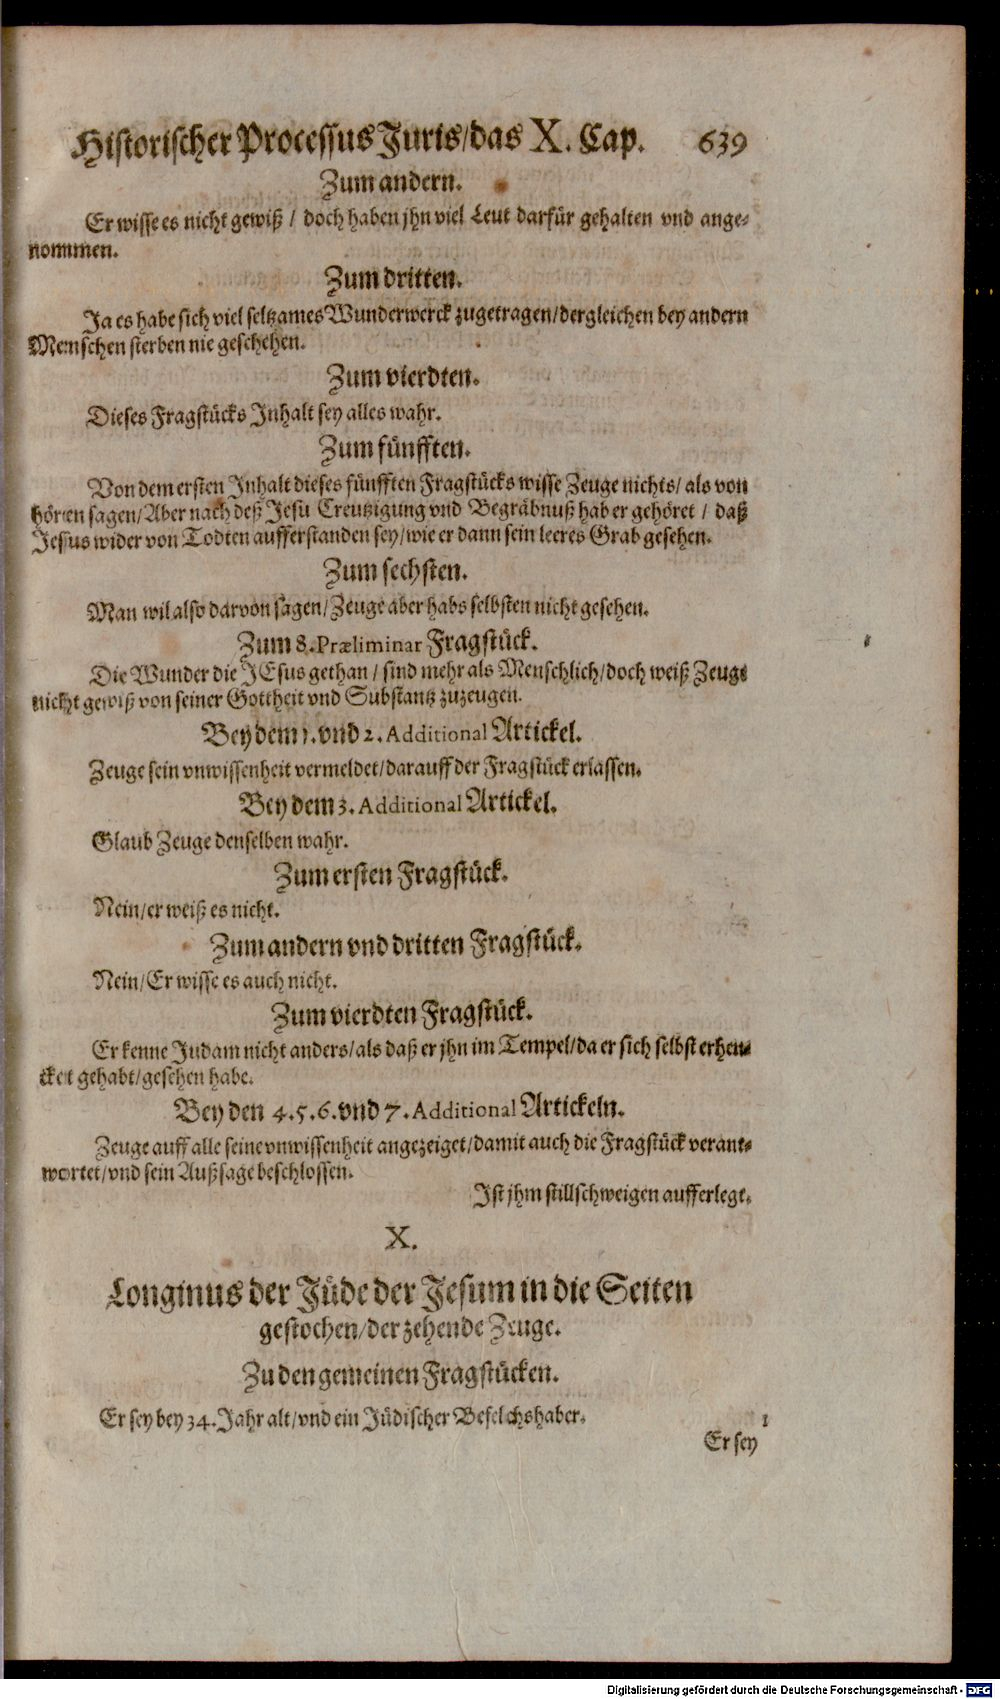 Historischer Processus Juris/das X. Cap. 639
Zum andern.
Er wisse es nicht gewiß / doch haben jhn viel Leut darfür gehalten vnd ange-
nommen.
Zum dritten.
Ja es habe sich viel seltzames Wunderwerck zugetragen/dergleichen bey andern
Menschen sterben nie geschehen.
Zum vierdten.
Dieses Fragstücks Inhalt sey alles wahr.
Zum fünfften.
Von dem ersten Inhalt dieses fünfften Fragstücks wisse Zeuge nichts/ als von
hören sagen/Aber nach deß Jesu Creutzigung vnd Begräbnuß hab er gehöret / daß
Jesus wider von Todten aufferstanden sey/wie er dann sein leeres Grab gesehen.
Zum sechsten.
Man wil also darvon sagen/Zeuge aber habs selbsten nicht gesehen.
Zum 8. Præliminar Fragstück.
Die Wunder die JEsus gethan / sind mehr als Menschlich/doch weiß Zeuge
nicht gewiß von seiner Gottheit vnd Substantz zuzeugen.
Bey dem 1. vnd 2. Additional Artickel.
Zeuge sein vnwissenheit vermeldet/darauff der Fragstück erlassen.
Bey dem 3. Additional Artickel.
Glaub Zeuge denselben wahr.
Zum ersten Fragstück.
Nein/er weiß es nicht.
Zum andern vnd dritten Fragstück.
Nein/Er wisse es auch nicht.
Zum vierdten Fragstück.
Er kenne Judam nicht anders/als daß er jhn im Tempel/da er sich selbst erhen-
cket gehabt/gesehen habe.
Bey den 4. 5. 6. vnd 7. Additional Artickeln.
Zeuge auff alle seine vnwissenheit angezeiget/damit auch die Fragstück verant-
wortet/vnd sein Außsage beschlossen.
Ist jhm stillschweigen aufferlegt.
X.
Longinus der Jüde der Jesum in die Seiten
gestochen/der zehende Zeuge.
Zu den gemeinen Fragstücken.
Er sey bey 34. Jahr alt/vnd ein Jüdischer Befelchshaber. 1
Er sey
Digitalisierung gefördert durch die Deutsche Forschungsgemeinschaft - DFG